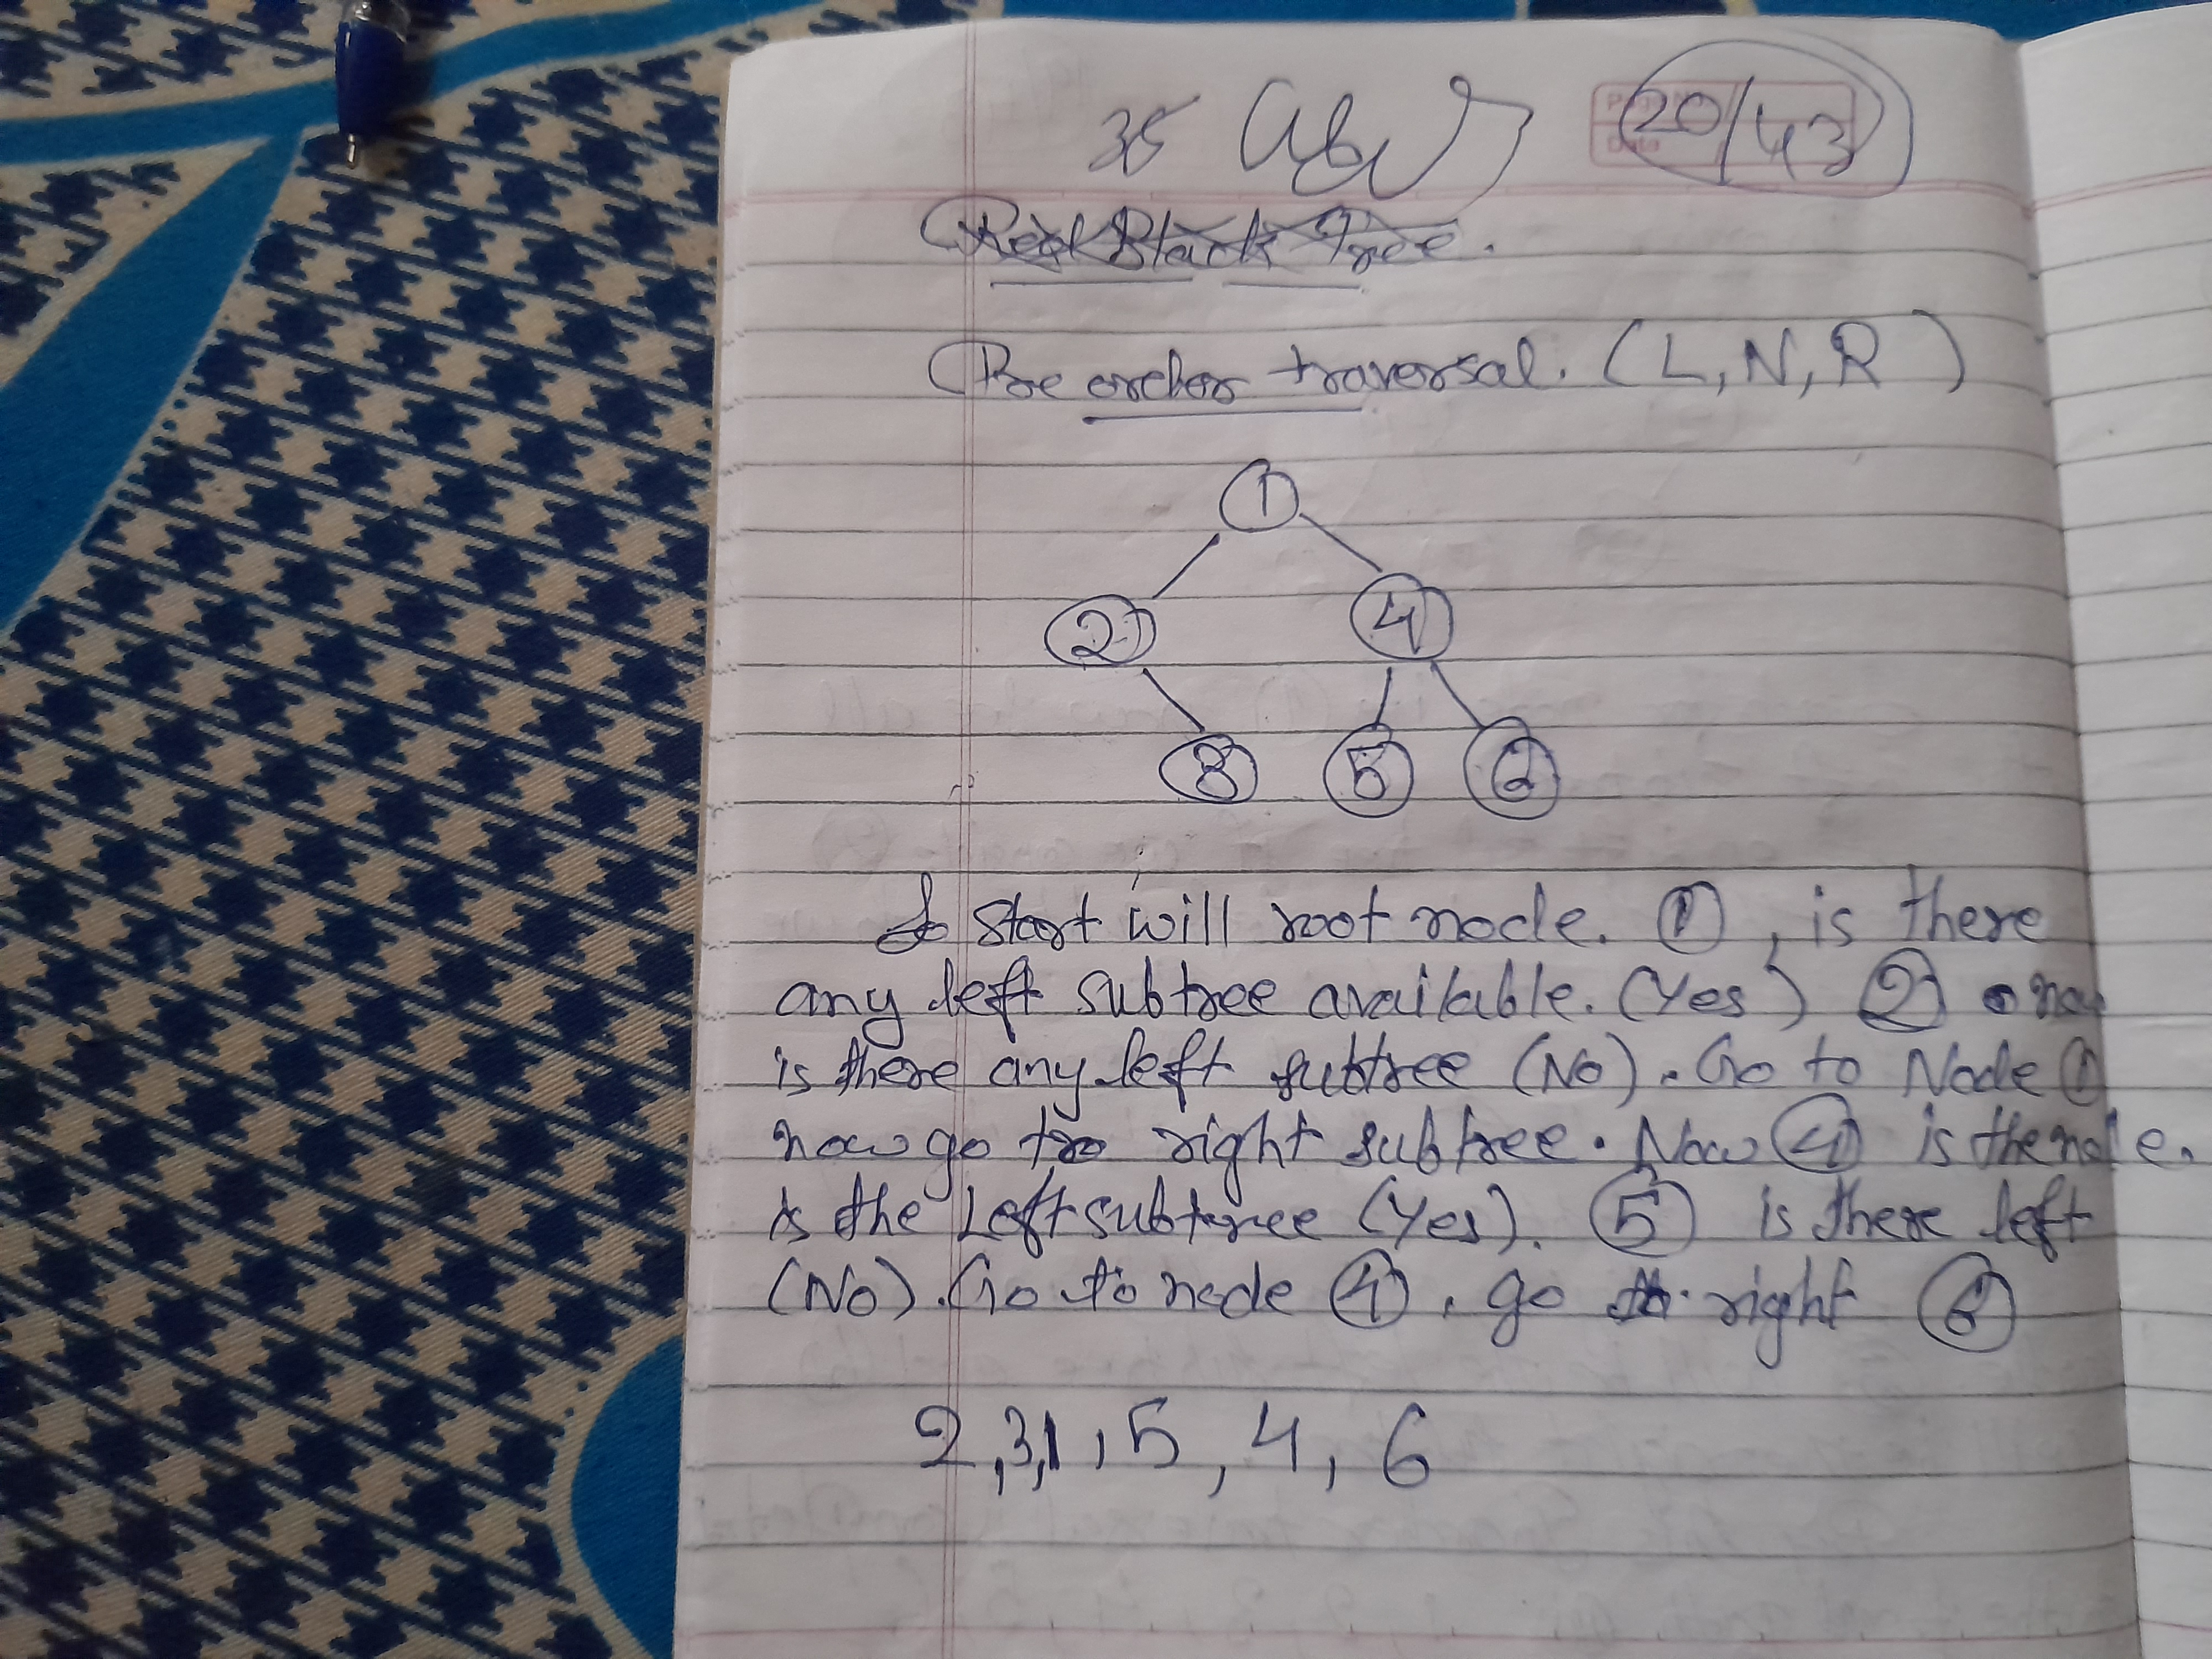 20/43
Pre order traversal. (L, N, R)
1
2 4
3 5 6
To Start will root node. 1, is there
any left subtree available. (Yes) 2 now
is there any left subtree (No). Go to Node 1
now go to right subtree. Now 4 is the node.
is the left subtree (Yes). 5 is there left
(No). Go to node 4, go to right 6
2, 3, 1, 5, 4, 6